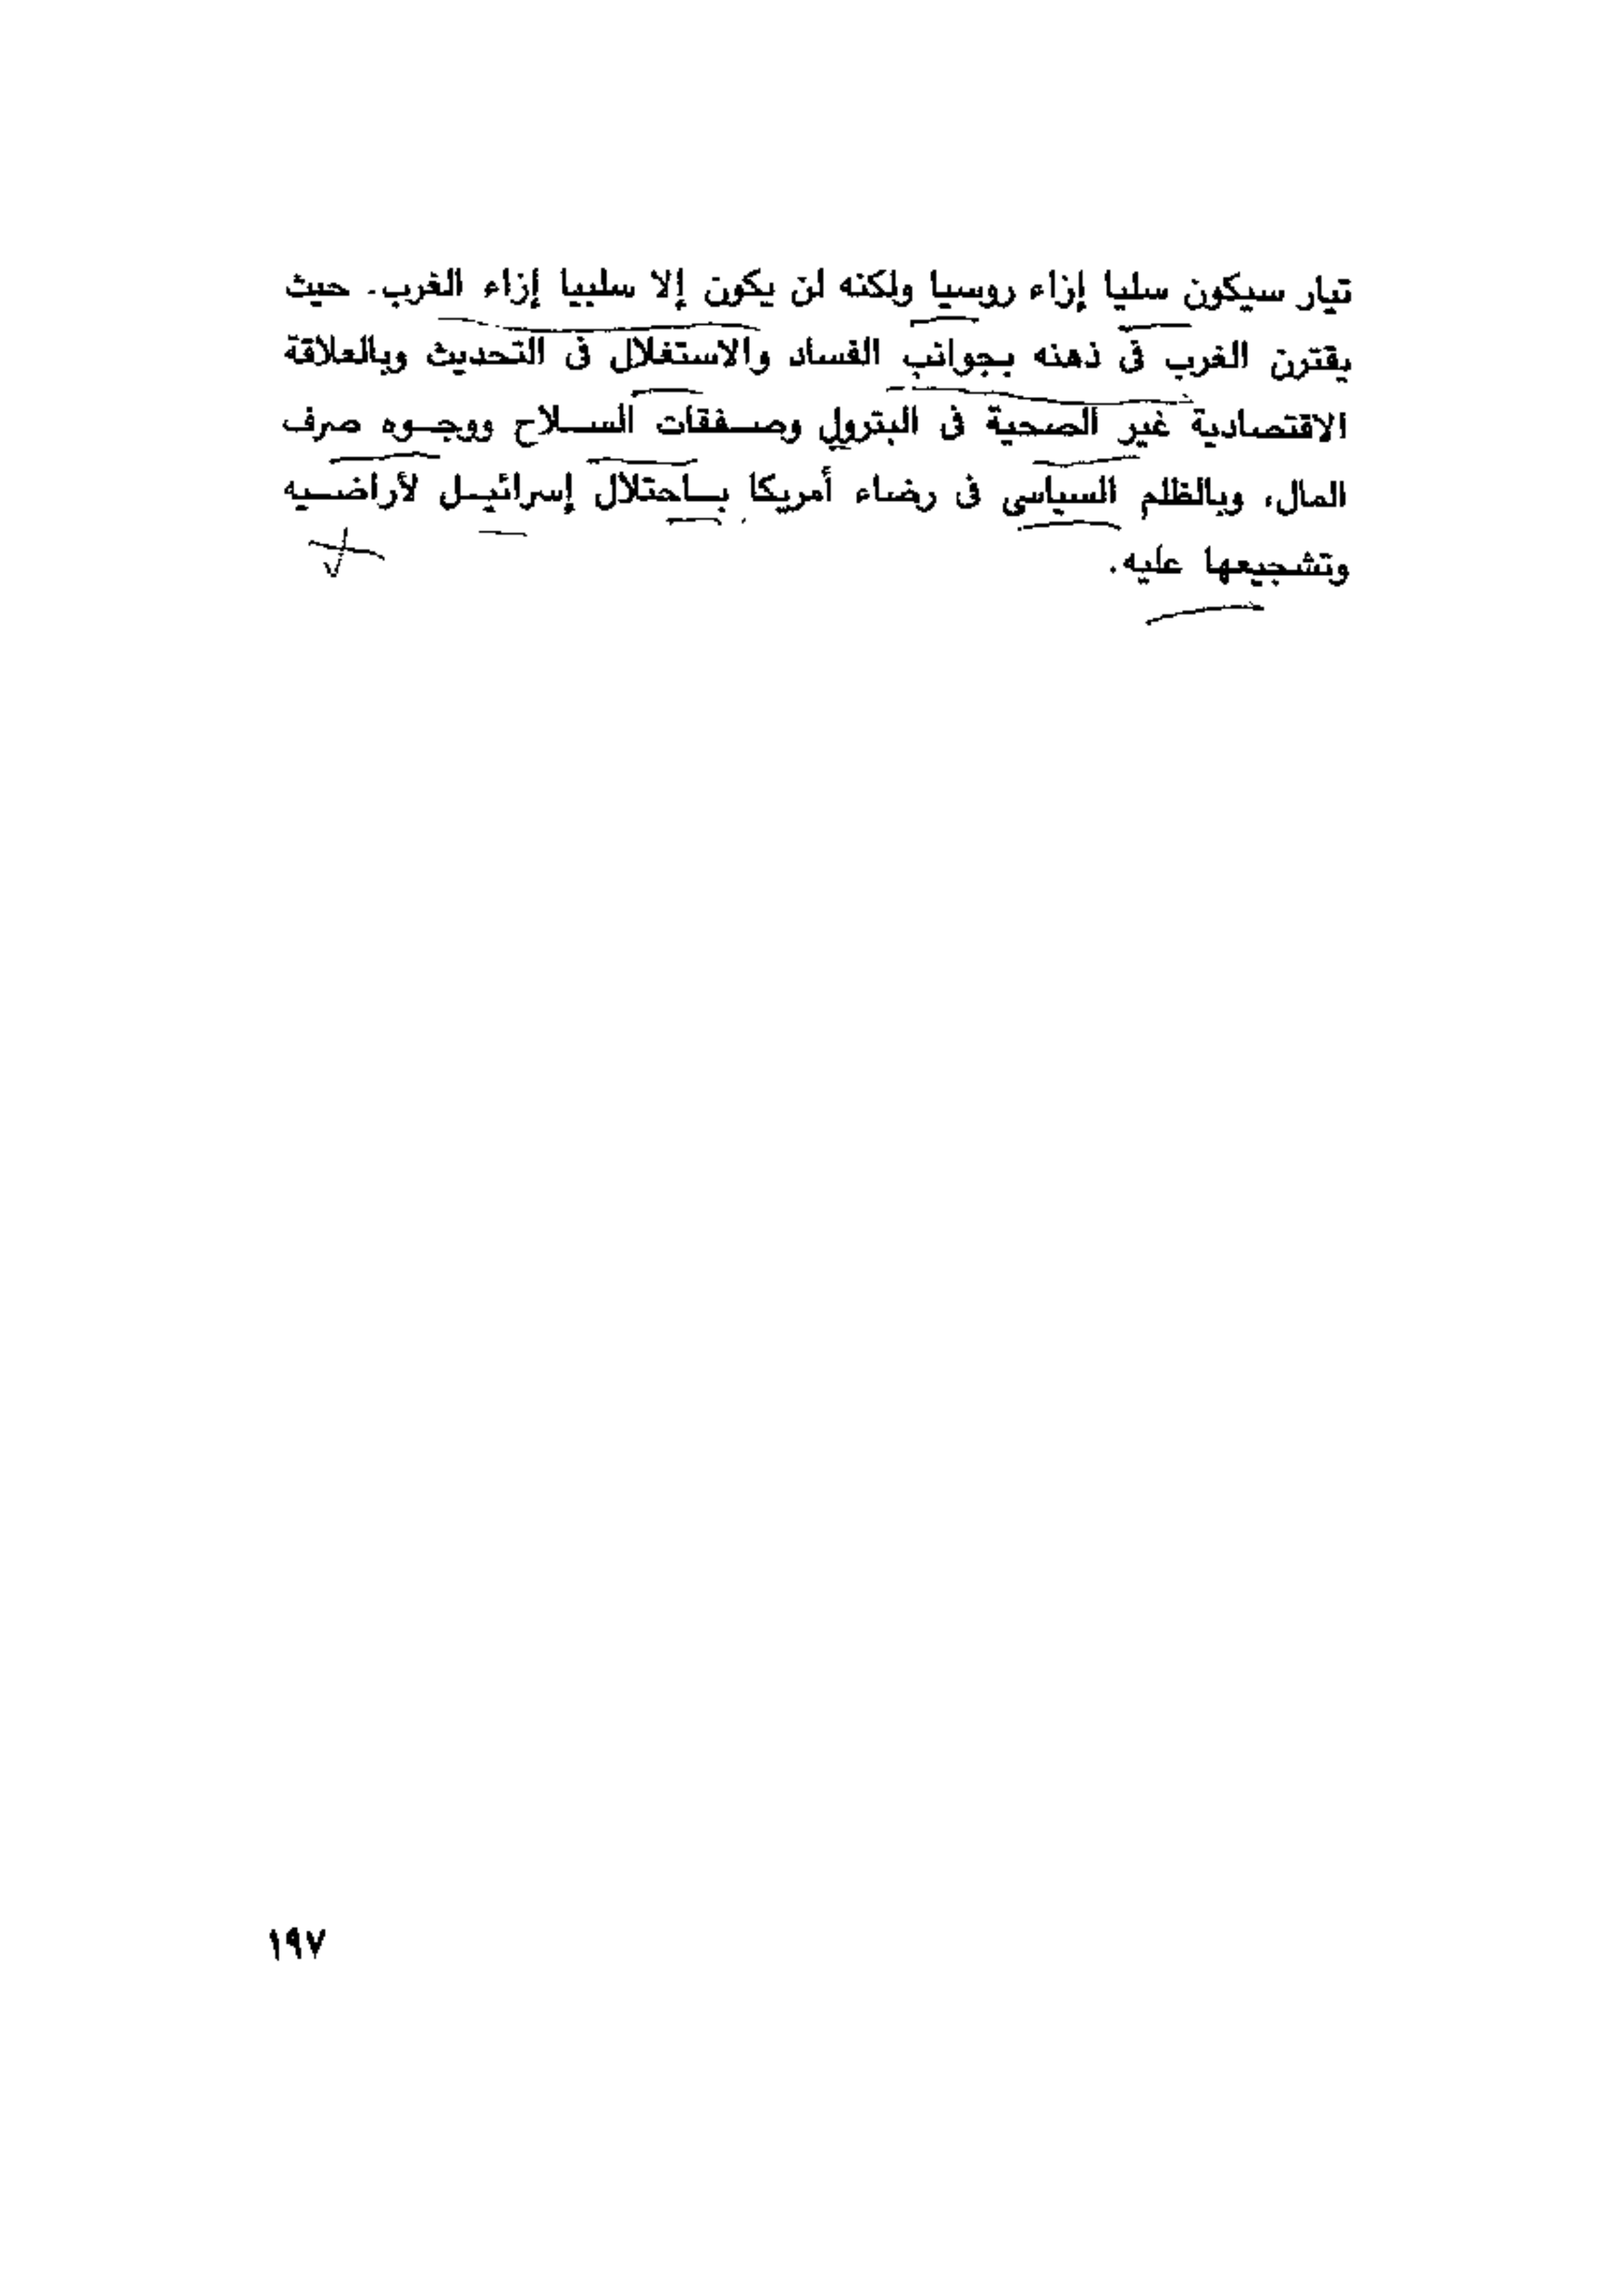 تيار سيكون سلبيا إزاء روسيا ولكنه لن يكون إلا سلبيا إزاء الغرب. حيث
يقترن الغرب فى ذهنه بجوانب الفساد والاستغلال فى التحديث وبالعلاقة
الاقتصادية غير الصحية فى البترول وصفقات السلاح ووجوه صرف
المال، وبالظلم السياسى فى رضاء أمريكا باحتلال إسرائيل لأراضيه
وتشجيعها عليه.
١٩٧